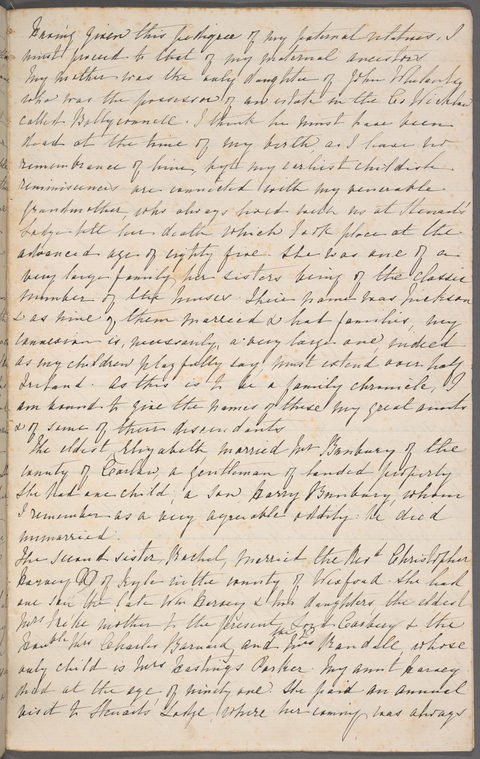 Having given this pedigree of my paternal relatives, I
must proceed to that of my maternal ancestors
My mother was the only daughter of John
who was the possessor of an estate in the Co Wicklow
called Ballyconnell. I think he must have been
dead at the time of my birth as I have no
remembrance of him, but my earliest childish
reminiscences are connected with my venerable
grandmother, who always lived with us at Steuarts
Lodge till her death which took place at the
advanced age of eighty five. She was one of a
very large family, her sisters being of the classic
number of the muses. Their name was Jackson
& as nine of them married & had families, my
connexion is, necessarily, a very large one indeed
as my children playfully say must extend over half
Ireland. As this is to be a family chronicle, I
am bound to give the names of these my great aunts
& of some of their descendants
The eldest Elizabeth married Mr Bunbury of the
county of Carlow, a gentleman of landed property
She had one child a son Harry Bunbury, whom
I remember as a very agreeable oddity. He died
unmarried.
The second sister, Rachel, married the Revd Christopher
Harvey DD of Kyle in the county of Wexford. She had
one son the late Wm Harvey & two daughters, the eldest
Mrs mother to the present Lord Carbery & the
Honble Mrs Charles Barnard and the Mrs Randall, whose
only child is Mrs Hastings Parker. My aunt Harvey
died at the age of ninety one. She paid an annual
visit to Steuarts Lodge, where her coming was always